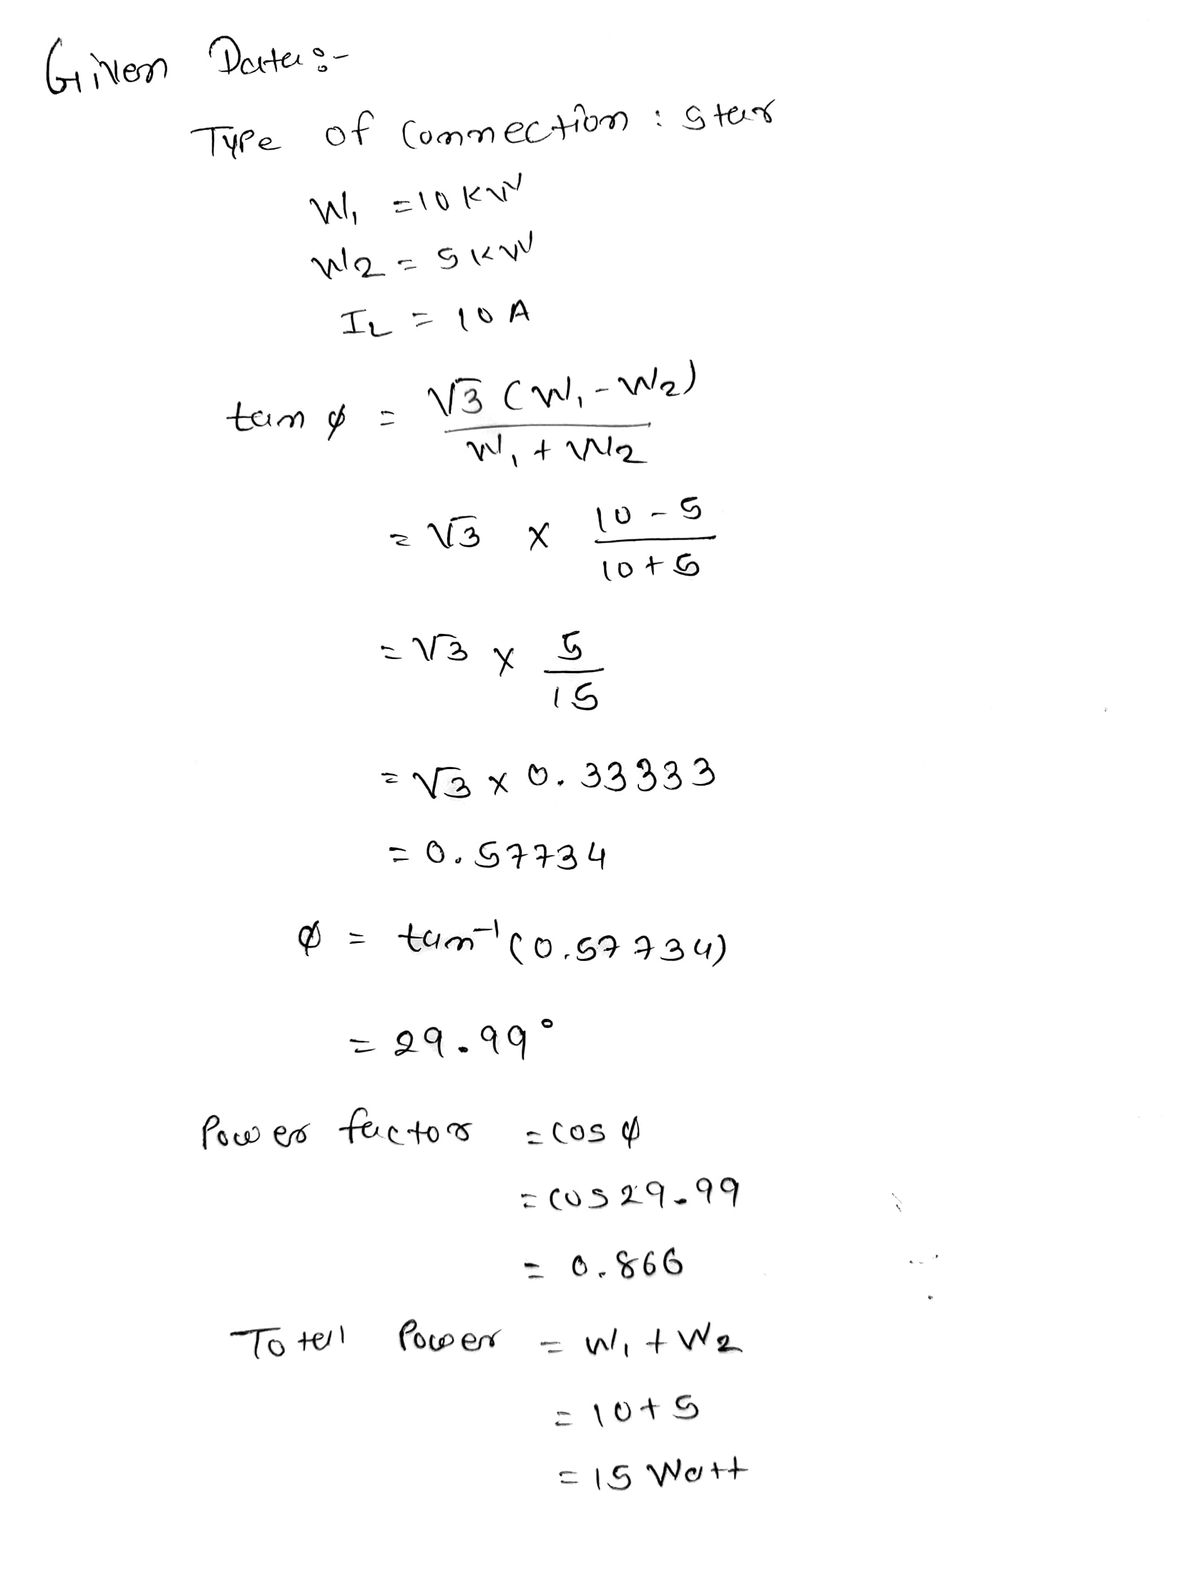 Given Data :-
Type of Connection : Star
W1 = 10 KW
W2 = 5 KW
IL = 10 A
tan φ = √3 (W1 - W2) / W1 + W2
= √3 × 10 - 5 / 10 + 5
= √3 × 5 / 15
= √3 × 0.33333
= 0.57734
φ = tan⁻¹ (0.57734)
= 29.99°
Power factor = cos φ
= cos 29.99
= 0.866
Total Power = W1 + W2
= 10 + 5
= 15 Watt